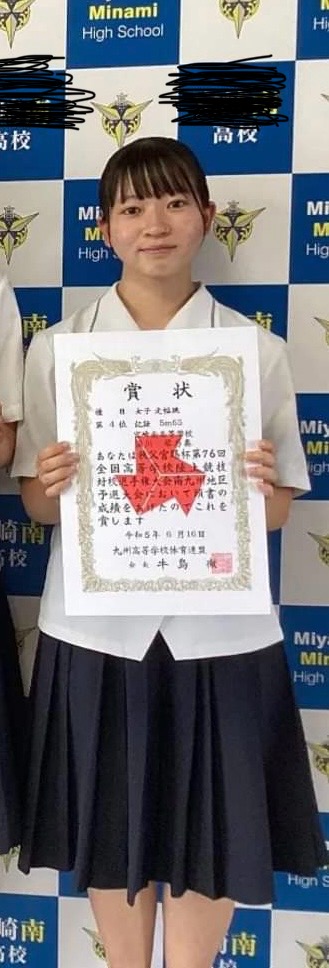 Minami
High School
高校
高校
Miy
M
High S
賞状
種目 女子 走幅跳
第4位 記録 5m63
あなたは秩父宮賜杯第76回
全国高等学校陸上競技
対校選手権大会南九州地区
予選大会において頭書の
成績をあげたのでこれを
賞します
令和5年6月16日
九州高等学校体育連盟
会長 牛島
崎南
Miya
Mi
High S
High Sc
崎南
高校
南
校